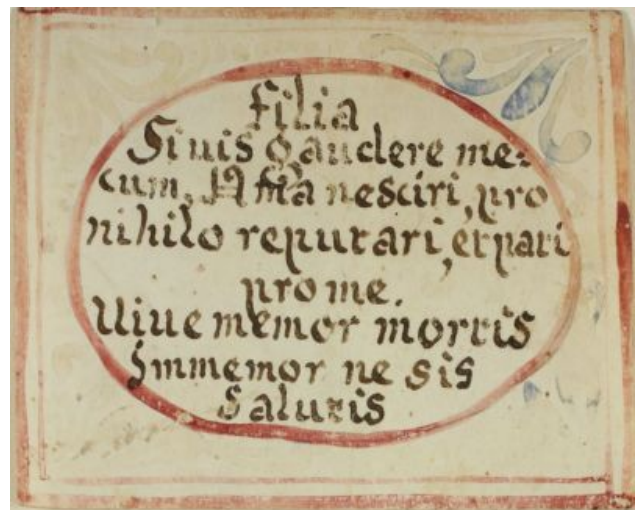 filia
Si uis gaudere me-
cum, Ama nesciri, pro
nihilo reputari, et pati
pro me.
Uiue memor mortis
Immemor ne sis
Salutis